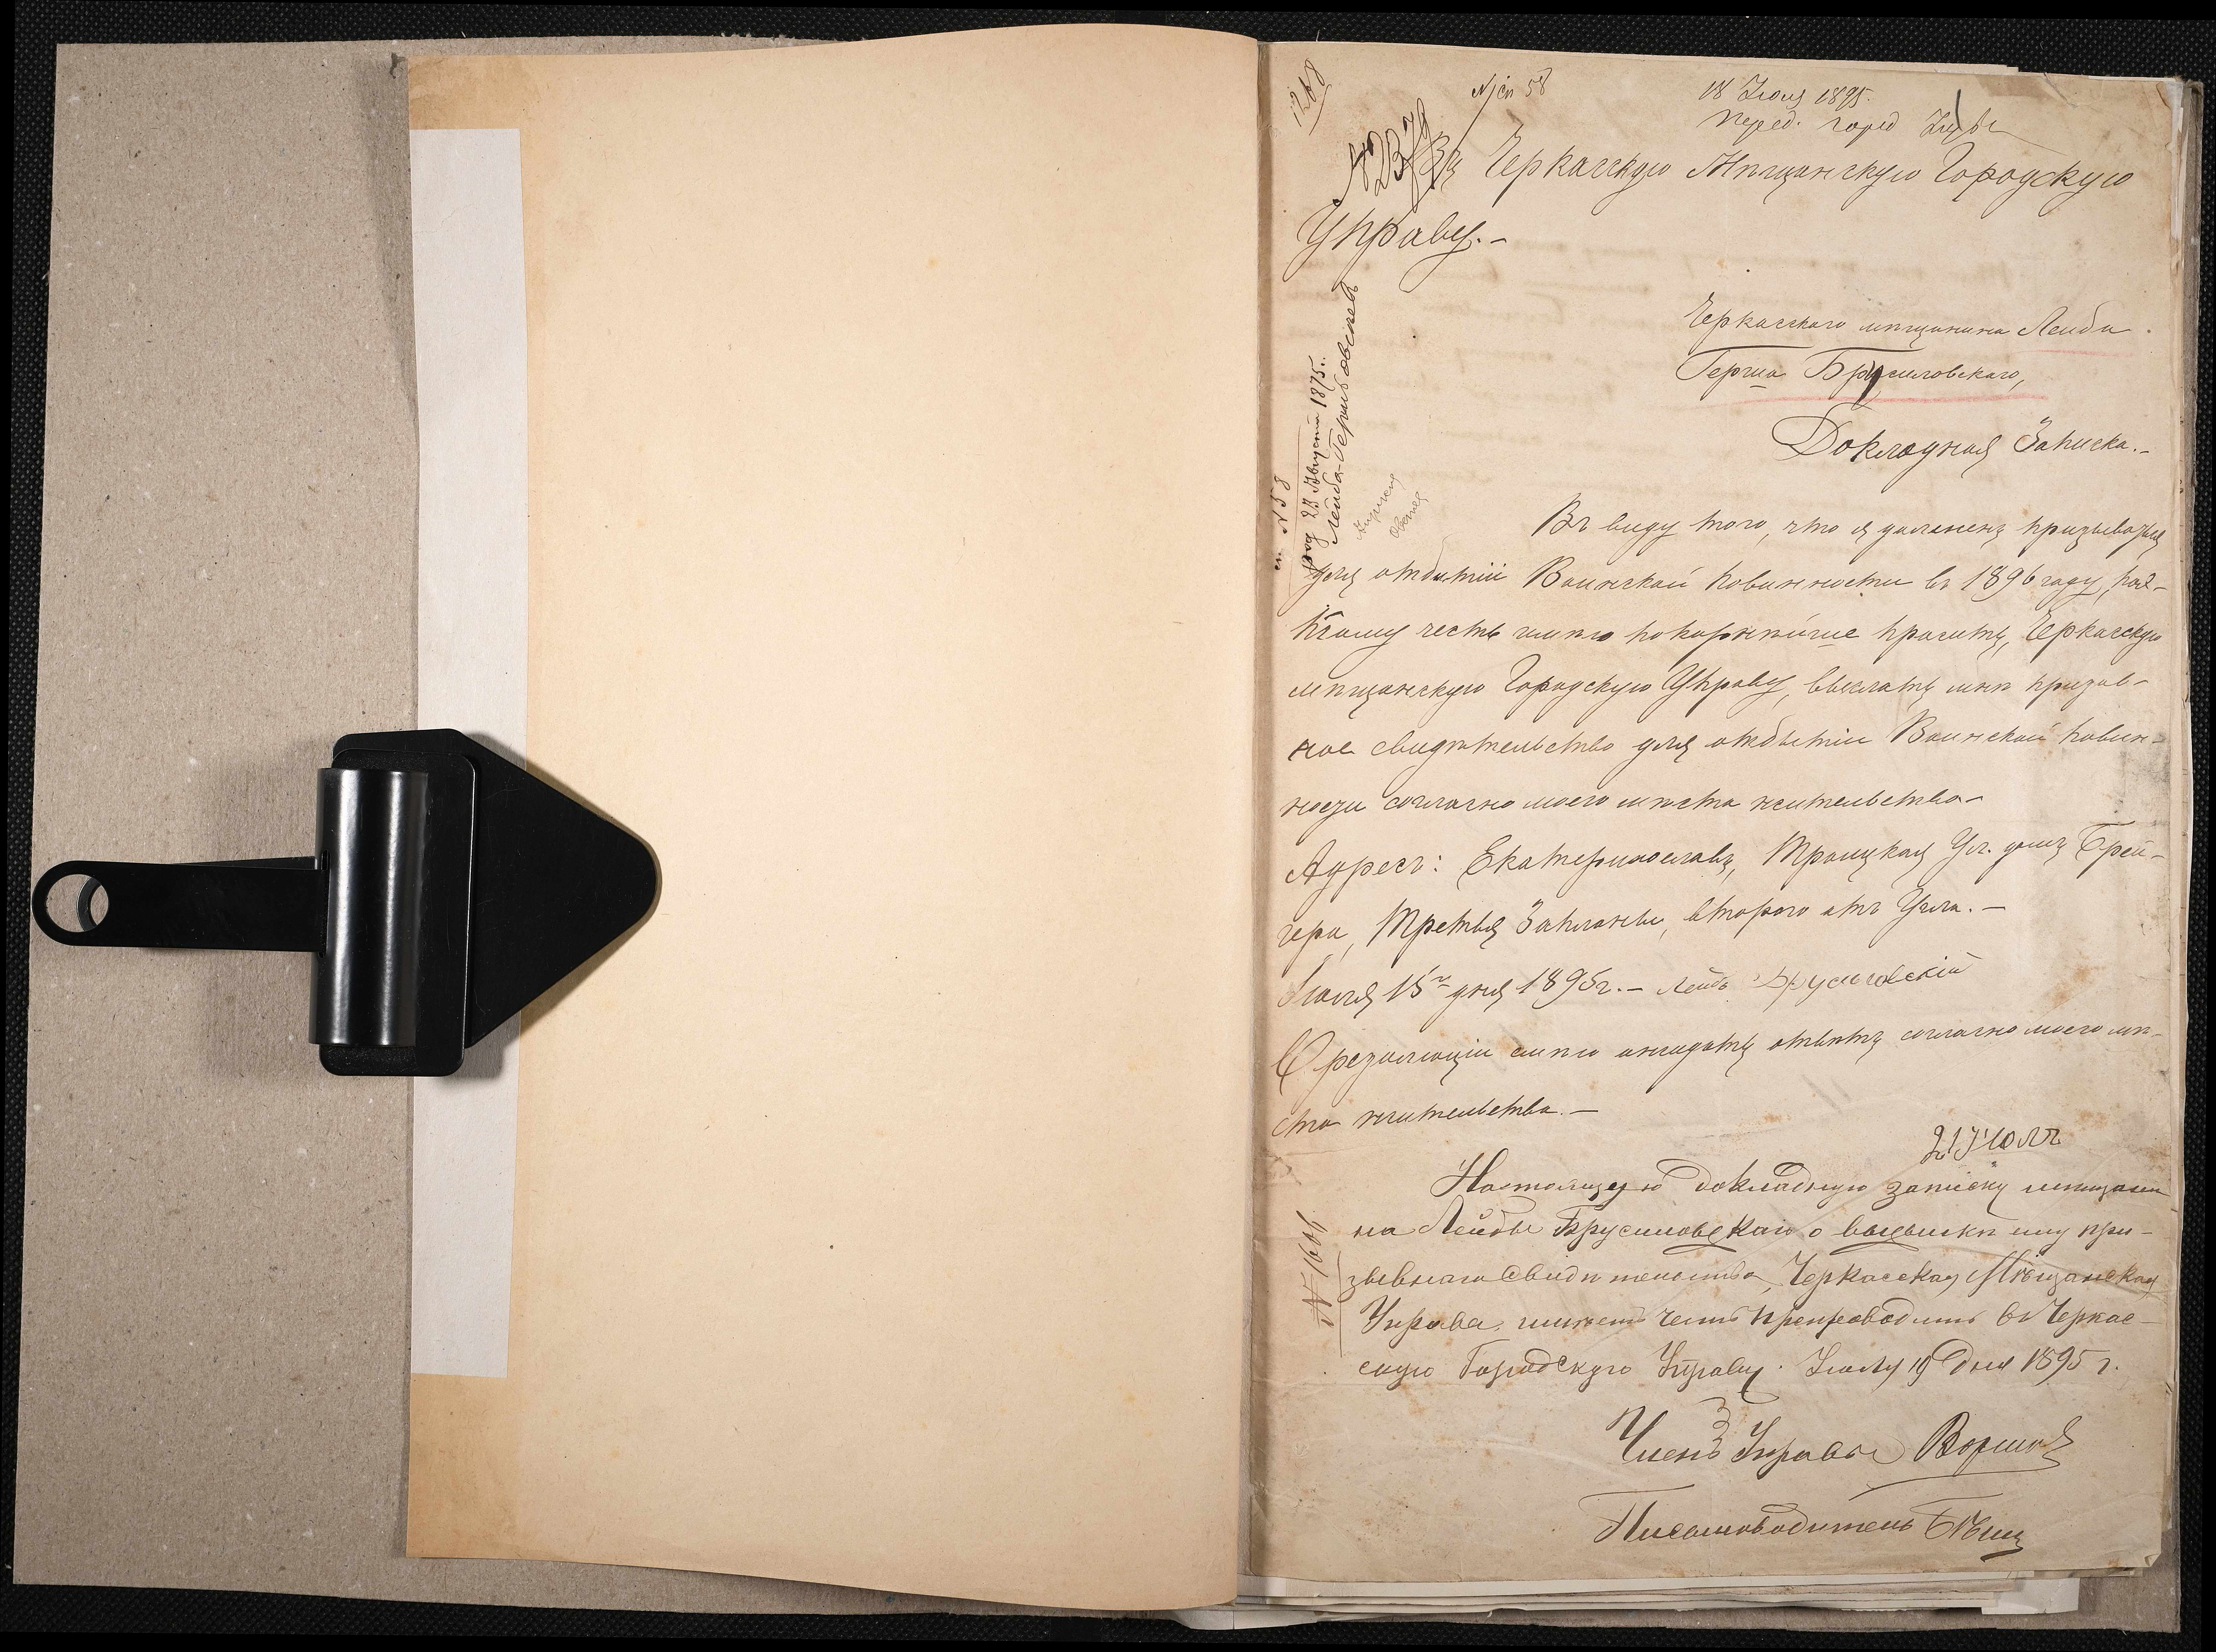 1268
№ сп 58
18 Июля 1895.
Перед. город Управе
Въ Черкасскую Мѣщанскую Городскую
Управу.-
Черкасского мѣщанина Лейбы
Герша Брусиловскаго,
Докладная Записка.-
сп № 58
род 23 Августа 1875 г.
Лейба-Гершковичъ
Въ виду того, что я долженъ призыватся
для отбытіи Воинской повинности въ 1896 году, по-
тому честь имѣю покорнѣйше просить, Черкасскую
мѣщанскую Городскую Управу, выслать мнѣ призыв-
ное свидѣтельство для отбытіи Воинской повин-
ности согласно моего мѣста жительства-
Адресъ: Екатеринославъ, Троицкая Ул. домъ Грей-
гера, Третья, второго отъ Угла.-
Июля 15го дня 1895г.- Лейба Брусиловскій
О резолюціи имѣю ожидать отвѣтъ согласно моего мѣ-
ста жительства.-
21 Июля
Настоящую докладную записку мѣщани
на Лейбы Брусиловскаго о высылкѣ ему при-
зывнаго свидѣтельства, Черкасская Мѣщанская
Управа, имѣетъ честь препроводить въ Черкас-
скую Городскую Управу. Июля 19 дня 1895 г.
№ 1601
Членъ Управы
Письмоводитель